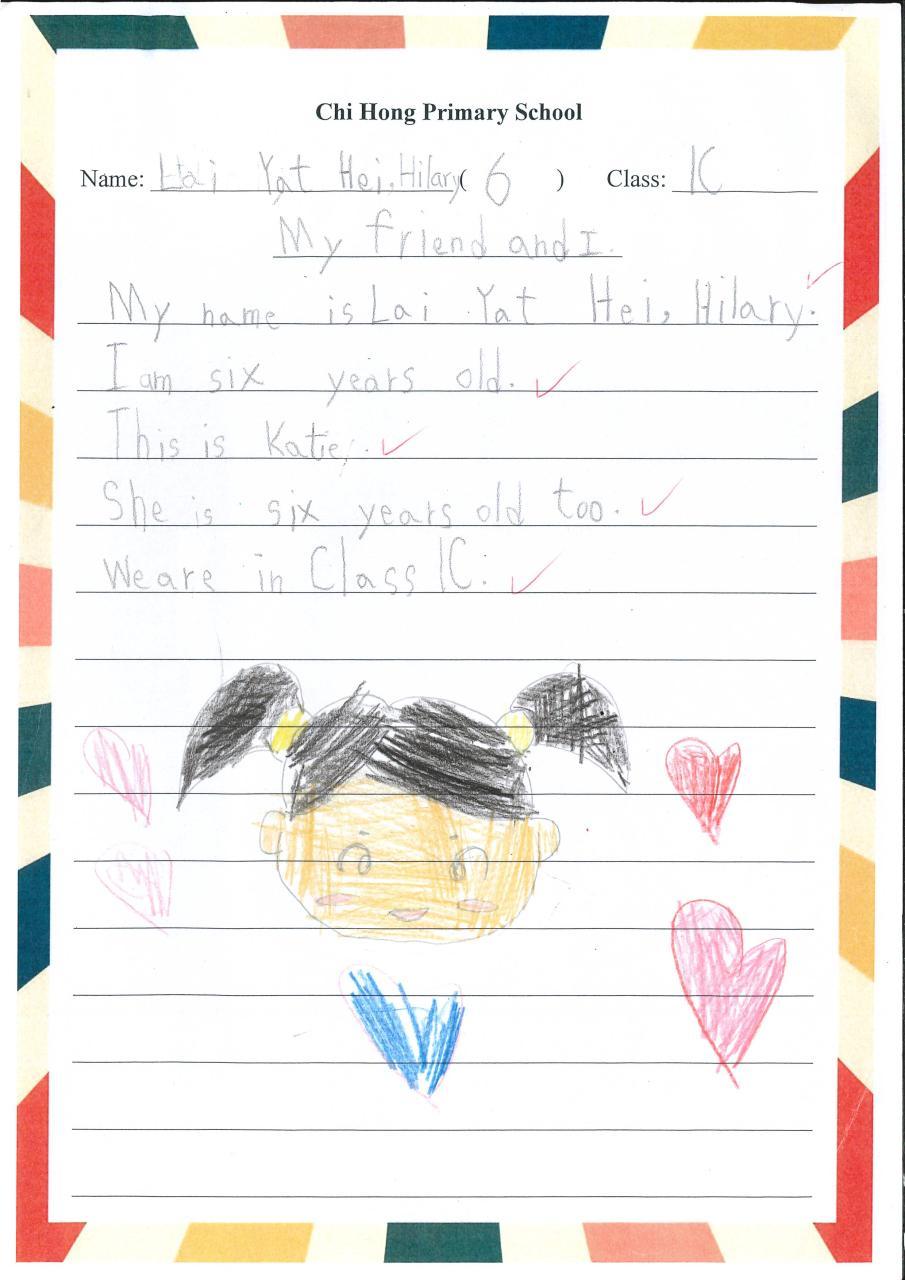 Chi Hong Primary School
Name: Lai Yat Hei, Hilary ( 6 ) Class: 1C
My friend and I.
My name is Lai Yat Hei, Hilary.
I am six years old.
This is Katie.
She is six years old too.
We are in Class 1C.